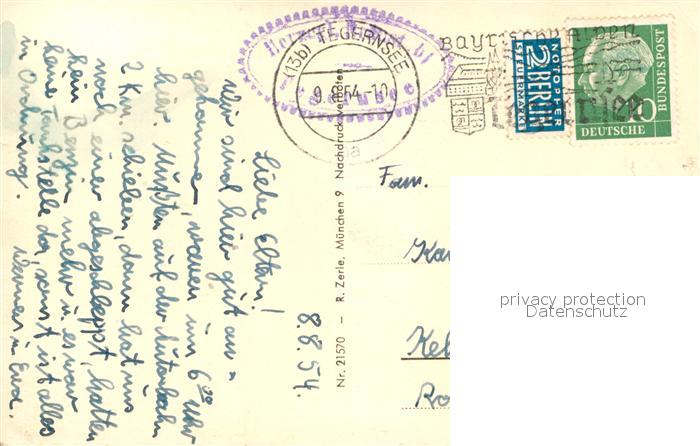 8.8.54.
Liebe Eltern!
Wir sind hier gut an-
gekommen, waren um 6 00 Uhr
hier. Mußten auf der Autobahn
2 Km. schieben, dann hat uns
noch einer abgeschleppt, hatten
kein Benzin mehr u. es war
keine Tankstelle da, sonst ist alles
in Ordnung.
Werner u. Eva.
Nr. 21570 — R. Zerle, München 9 Nachdruck verboten
(13b) TEGERNSEE
9.8.54.-10
a
Bayrischen Alpen
NOTOPFER
2 BERLIN
STEUERMARKE
10
DEUTSCHE
BUNDESPOST
Fam.
Ka
Kel
Ro
privacy protection
Datenschutz